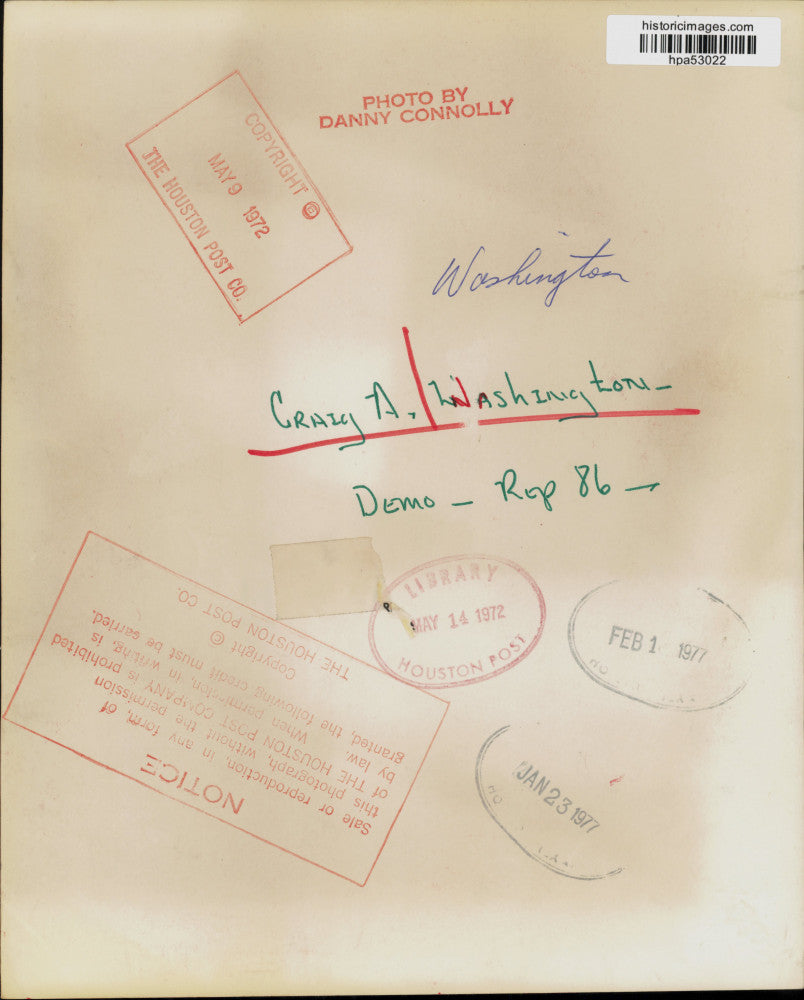 historicimages.com
hpa53022
PHOTO BY
DANNY CONNOLLY
COPYRIGHT ©
MAY 9 1972
THE HOUSTON POST CO.
Washington
CRAIG A. Washington
DEMO - Rep 86
LIBRARY
MAY 14 1972
HOUSTON POST
FEB 1 1977
HO
JAN 23 1977
HO
NOTICE
Sale or reproduction, in any form, of
this photograph, without the permission
of THE HOUSTON POST COMPANY is prohibited
by law. When permission, in writing, is
granted, the following credit must be carried.
Copyright ©
THE HOUSTON POST CO.